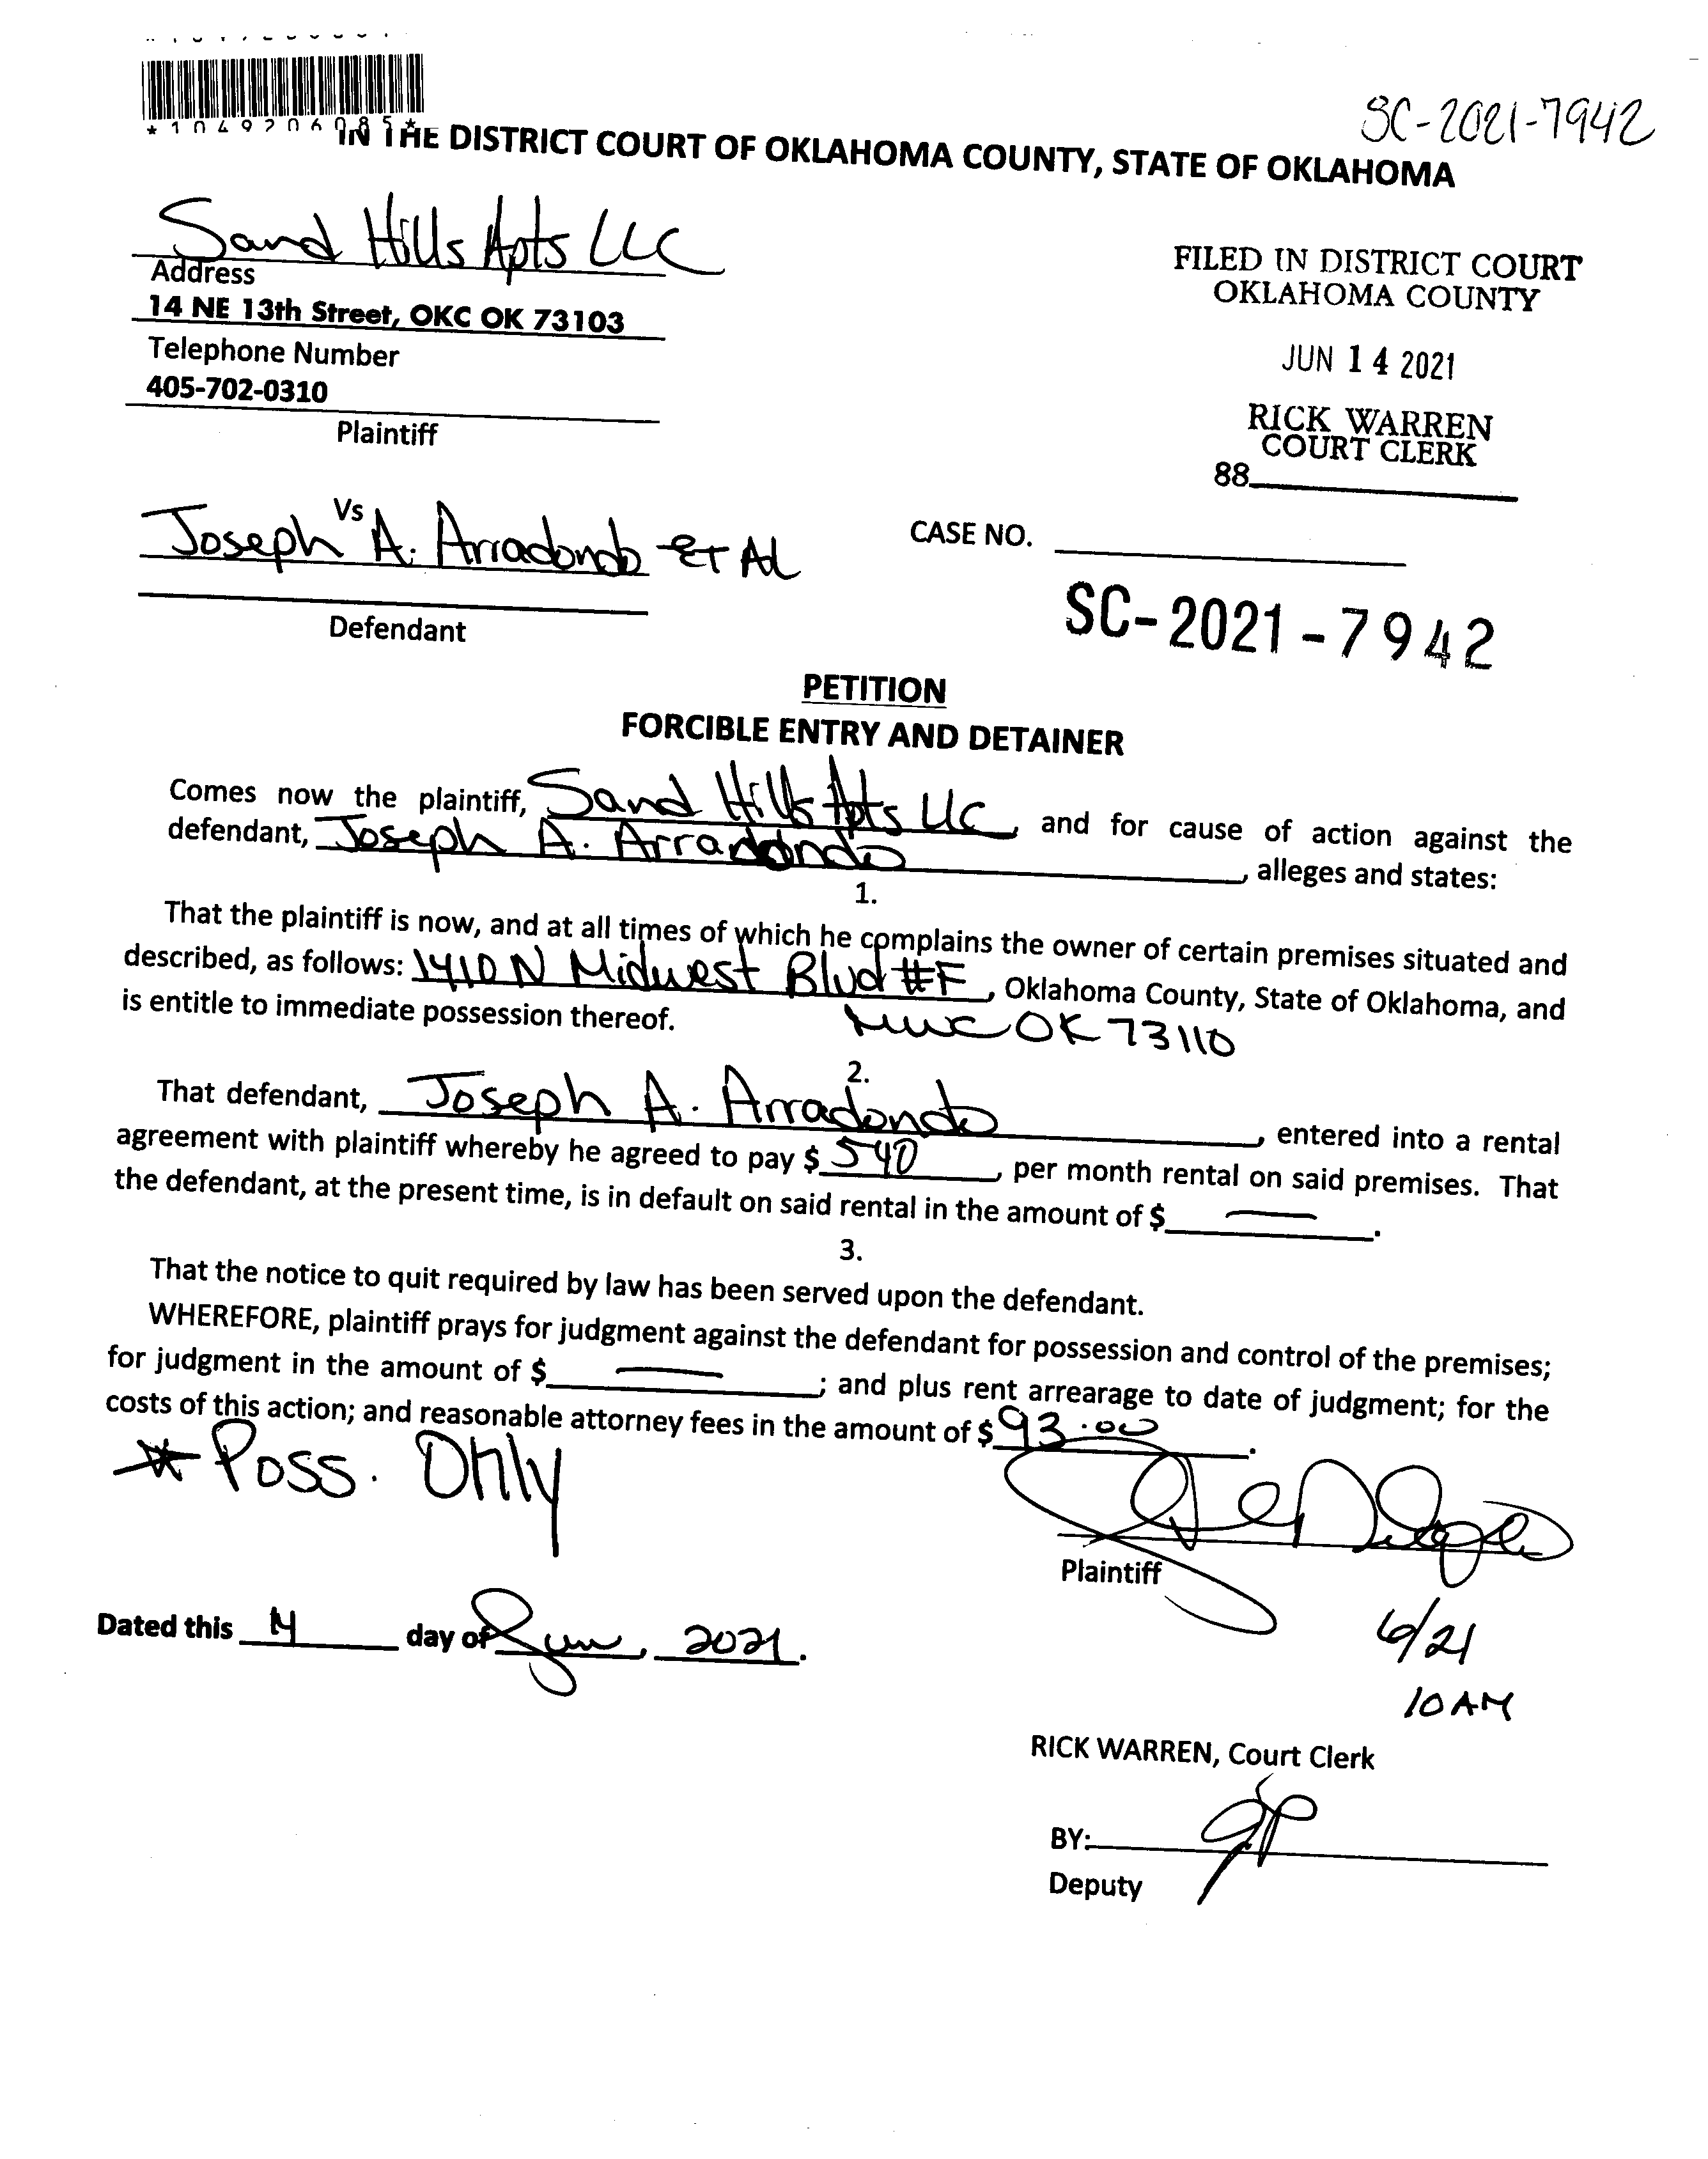 SC-2021-7942
*1049206085*
IN THE DISTRICT COURT OF OKLAHOMA COUNTY, STATE OF OKLAHOMA
Sand Hills Apts LLC
Address
14 NE 13th Street, OKC OK 73103
Telephone Number
405-702-0310
Plaintiff
FILED IN DISTRICT COURT
OKLAHOMA COUNTY
JUN 14 2021
RICK WARREN
COURT CLERK
88
Vs
Joseph A. Arradondo ET AL
Defendant
CASE NO.
SC-2021-7942
PETITION
FORCIBLE ENTRY AND DETAINER
Comes now the plaintiff, Sand Hills Apts LLC, and for cause of action against the
defendant, Joseph A. Arradondo, alleges and states:
1.
That the plaintiff is now, and at all times of which he complains the owner of certain premises situated and
described, as follows: 1410 N Midwest Blvd #F, Oklahoma County, State of Oklahoma, and
is entitle to immediate possession thereof. MWC OK 73110
2.
That defendant, Joseph A. Arradondo, entered into a rental
agreement with plaintiff whereby he agreed to pay $ 540, per month rental on said premises. That
the defendant, at the present time, is in default on said rental in the amount of $ —.
3.
That the notice to quit required by law has been served upon the defendant.
WHEREFORE, plaintiff prays for judgment against the defendant for possession and control of the premises;
for judgment in the amount of $ —; and plus rent arrearage to date of judgment; for the
costs of this action; and reasonable attorney fees in the amount of $ 93.00.
* Poss. Only
Plaintiff
Dated this 14 day of Jun, 2021.
6/21
10 AM
RICK WARREN, Court Clerk
BY:
Deputy